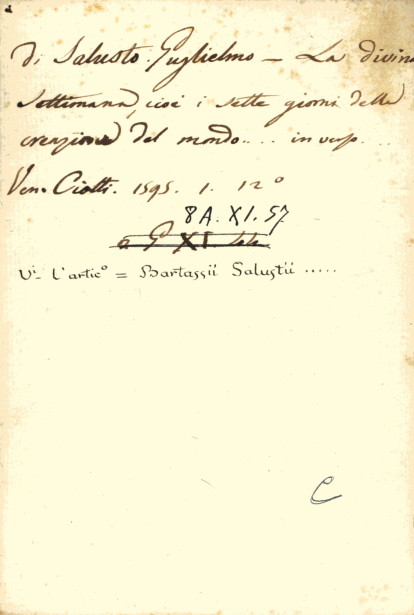 Di Salusto. Guglielmo — La divina
Settimana, cioè i sette giorni della
creazione del mondo.... in versi...
Ven. Ciotti. 1595. 1. 12º
8A. XI. 57
XI
Vi- l'articº = Bartassii Salustii .....
C